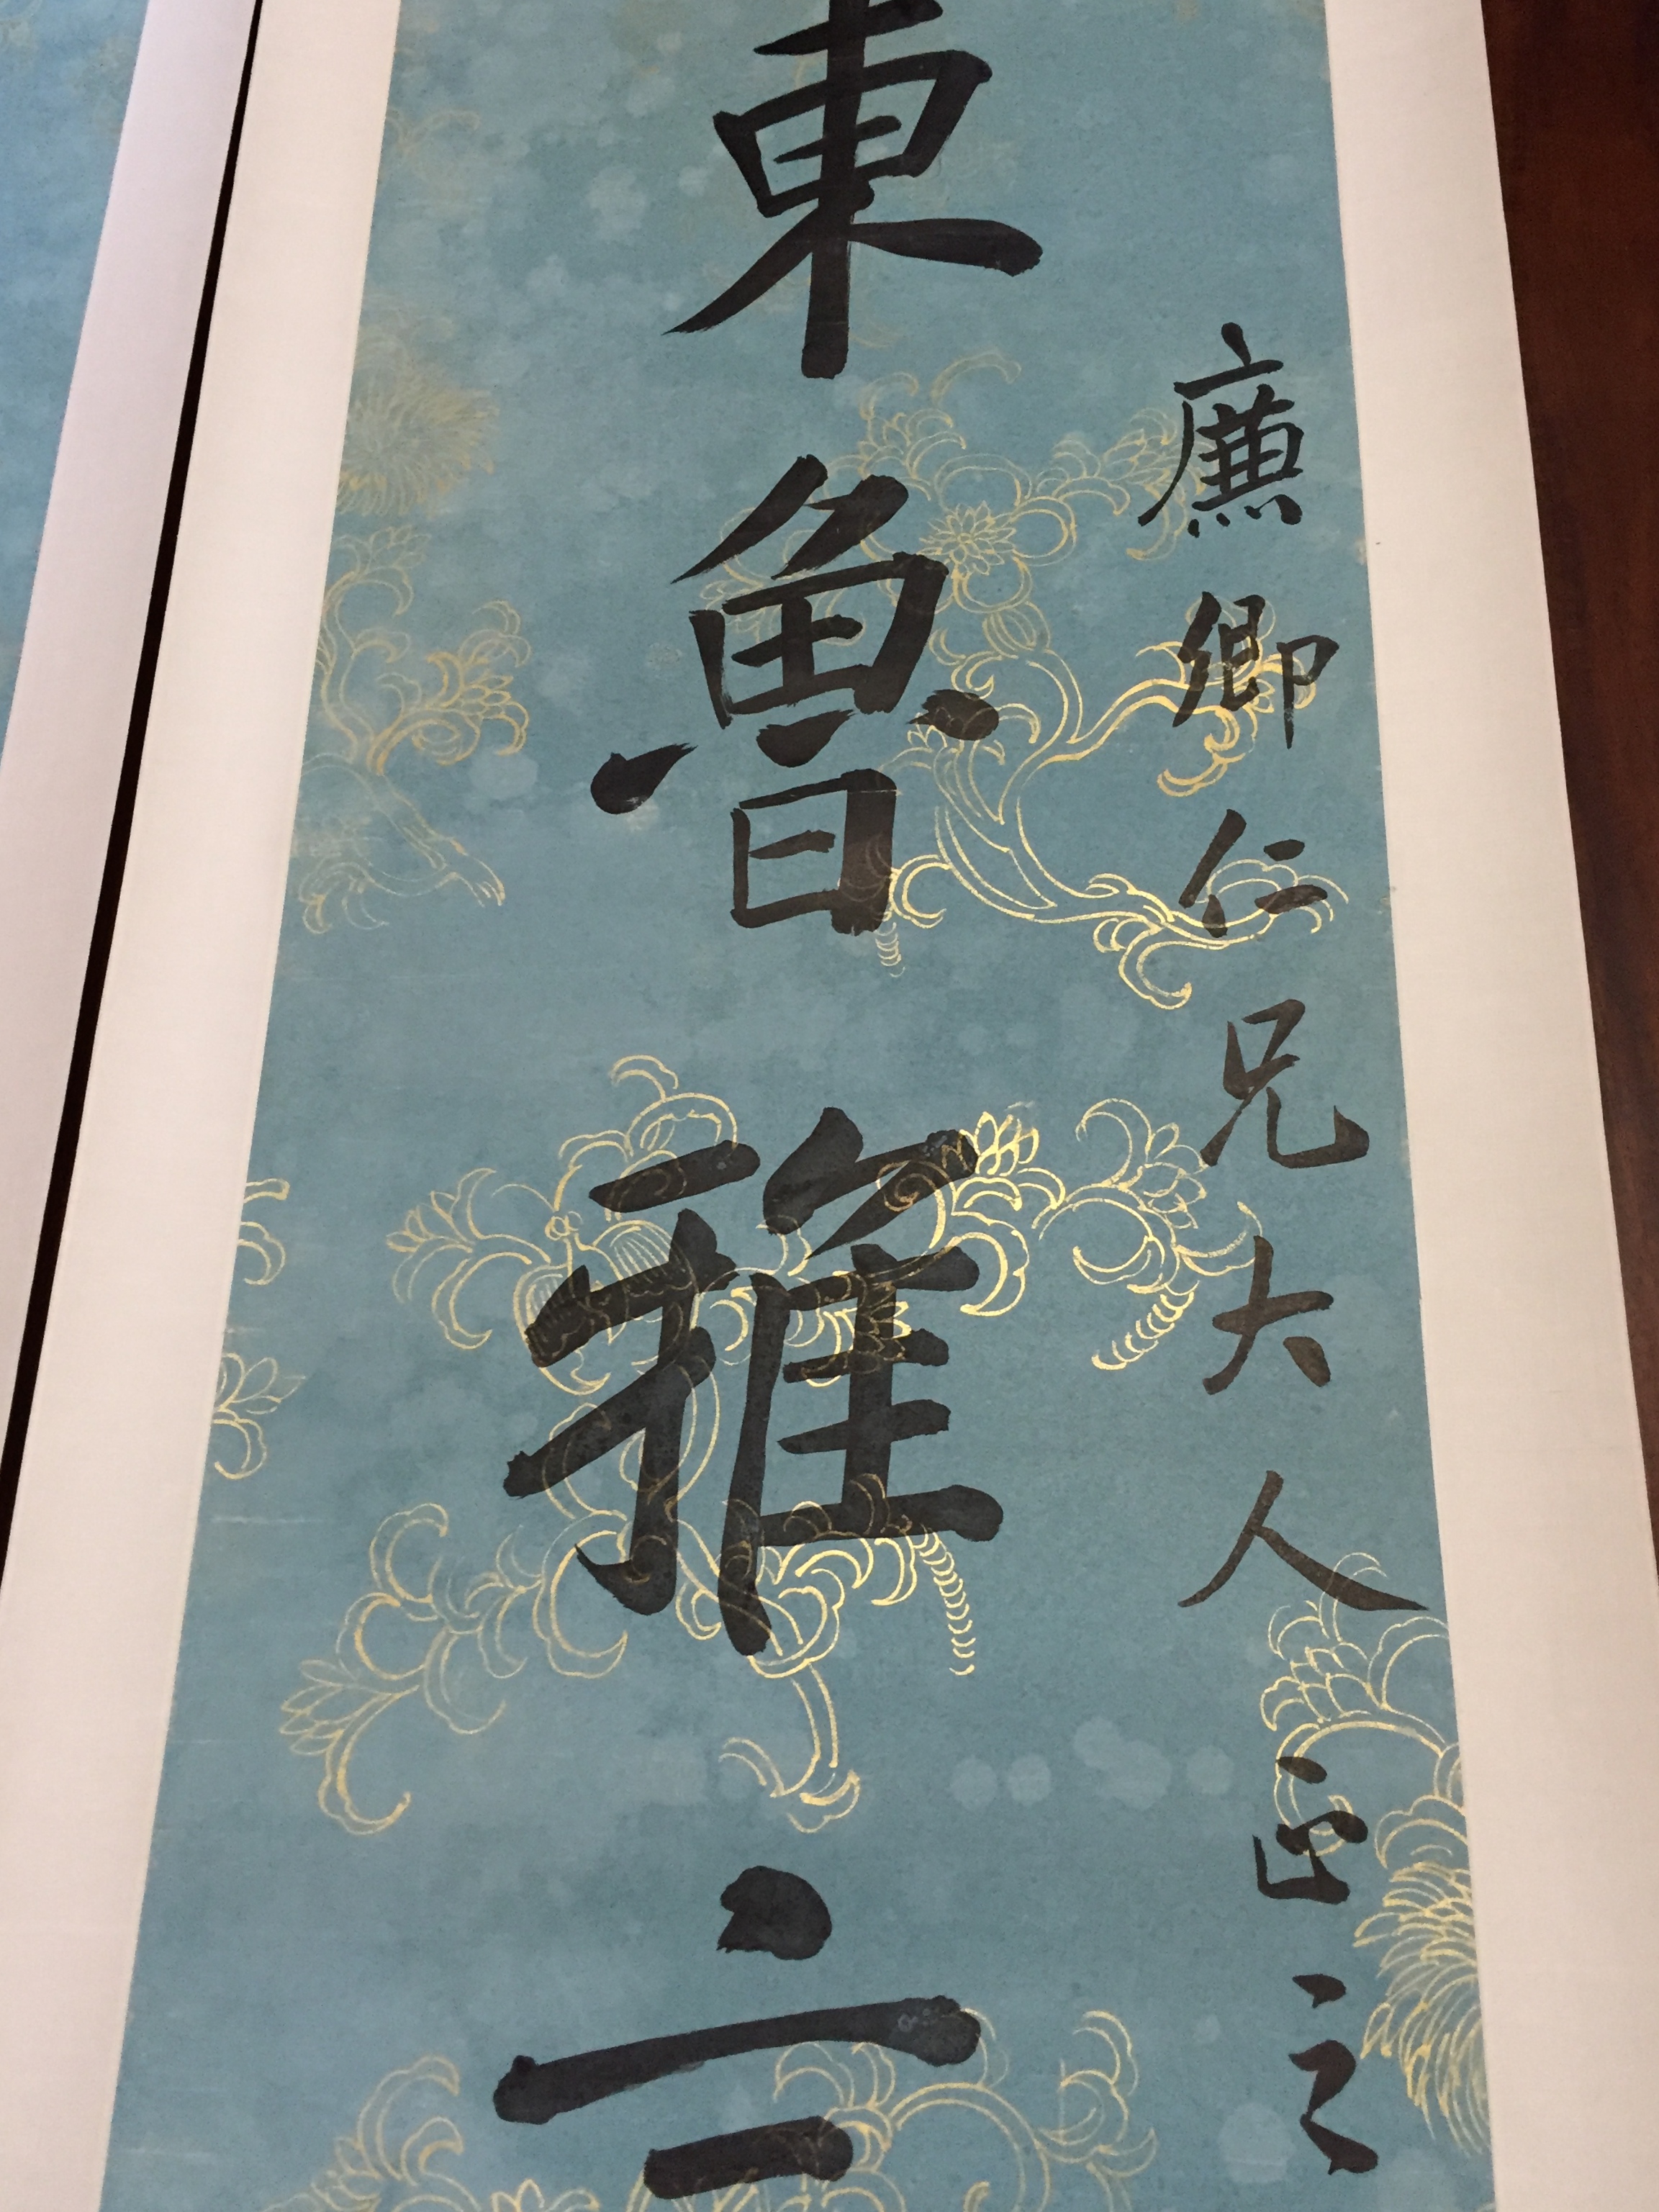 廉卿仁兄大人正之
東魯雅言